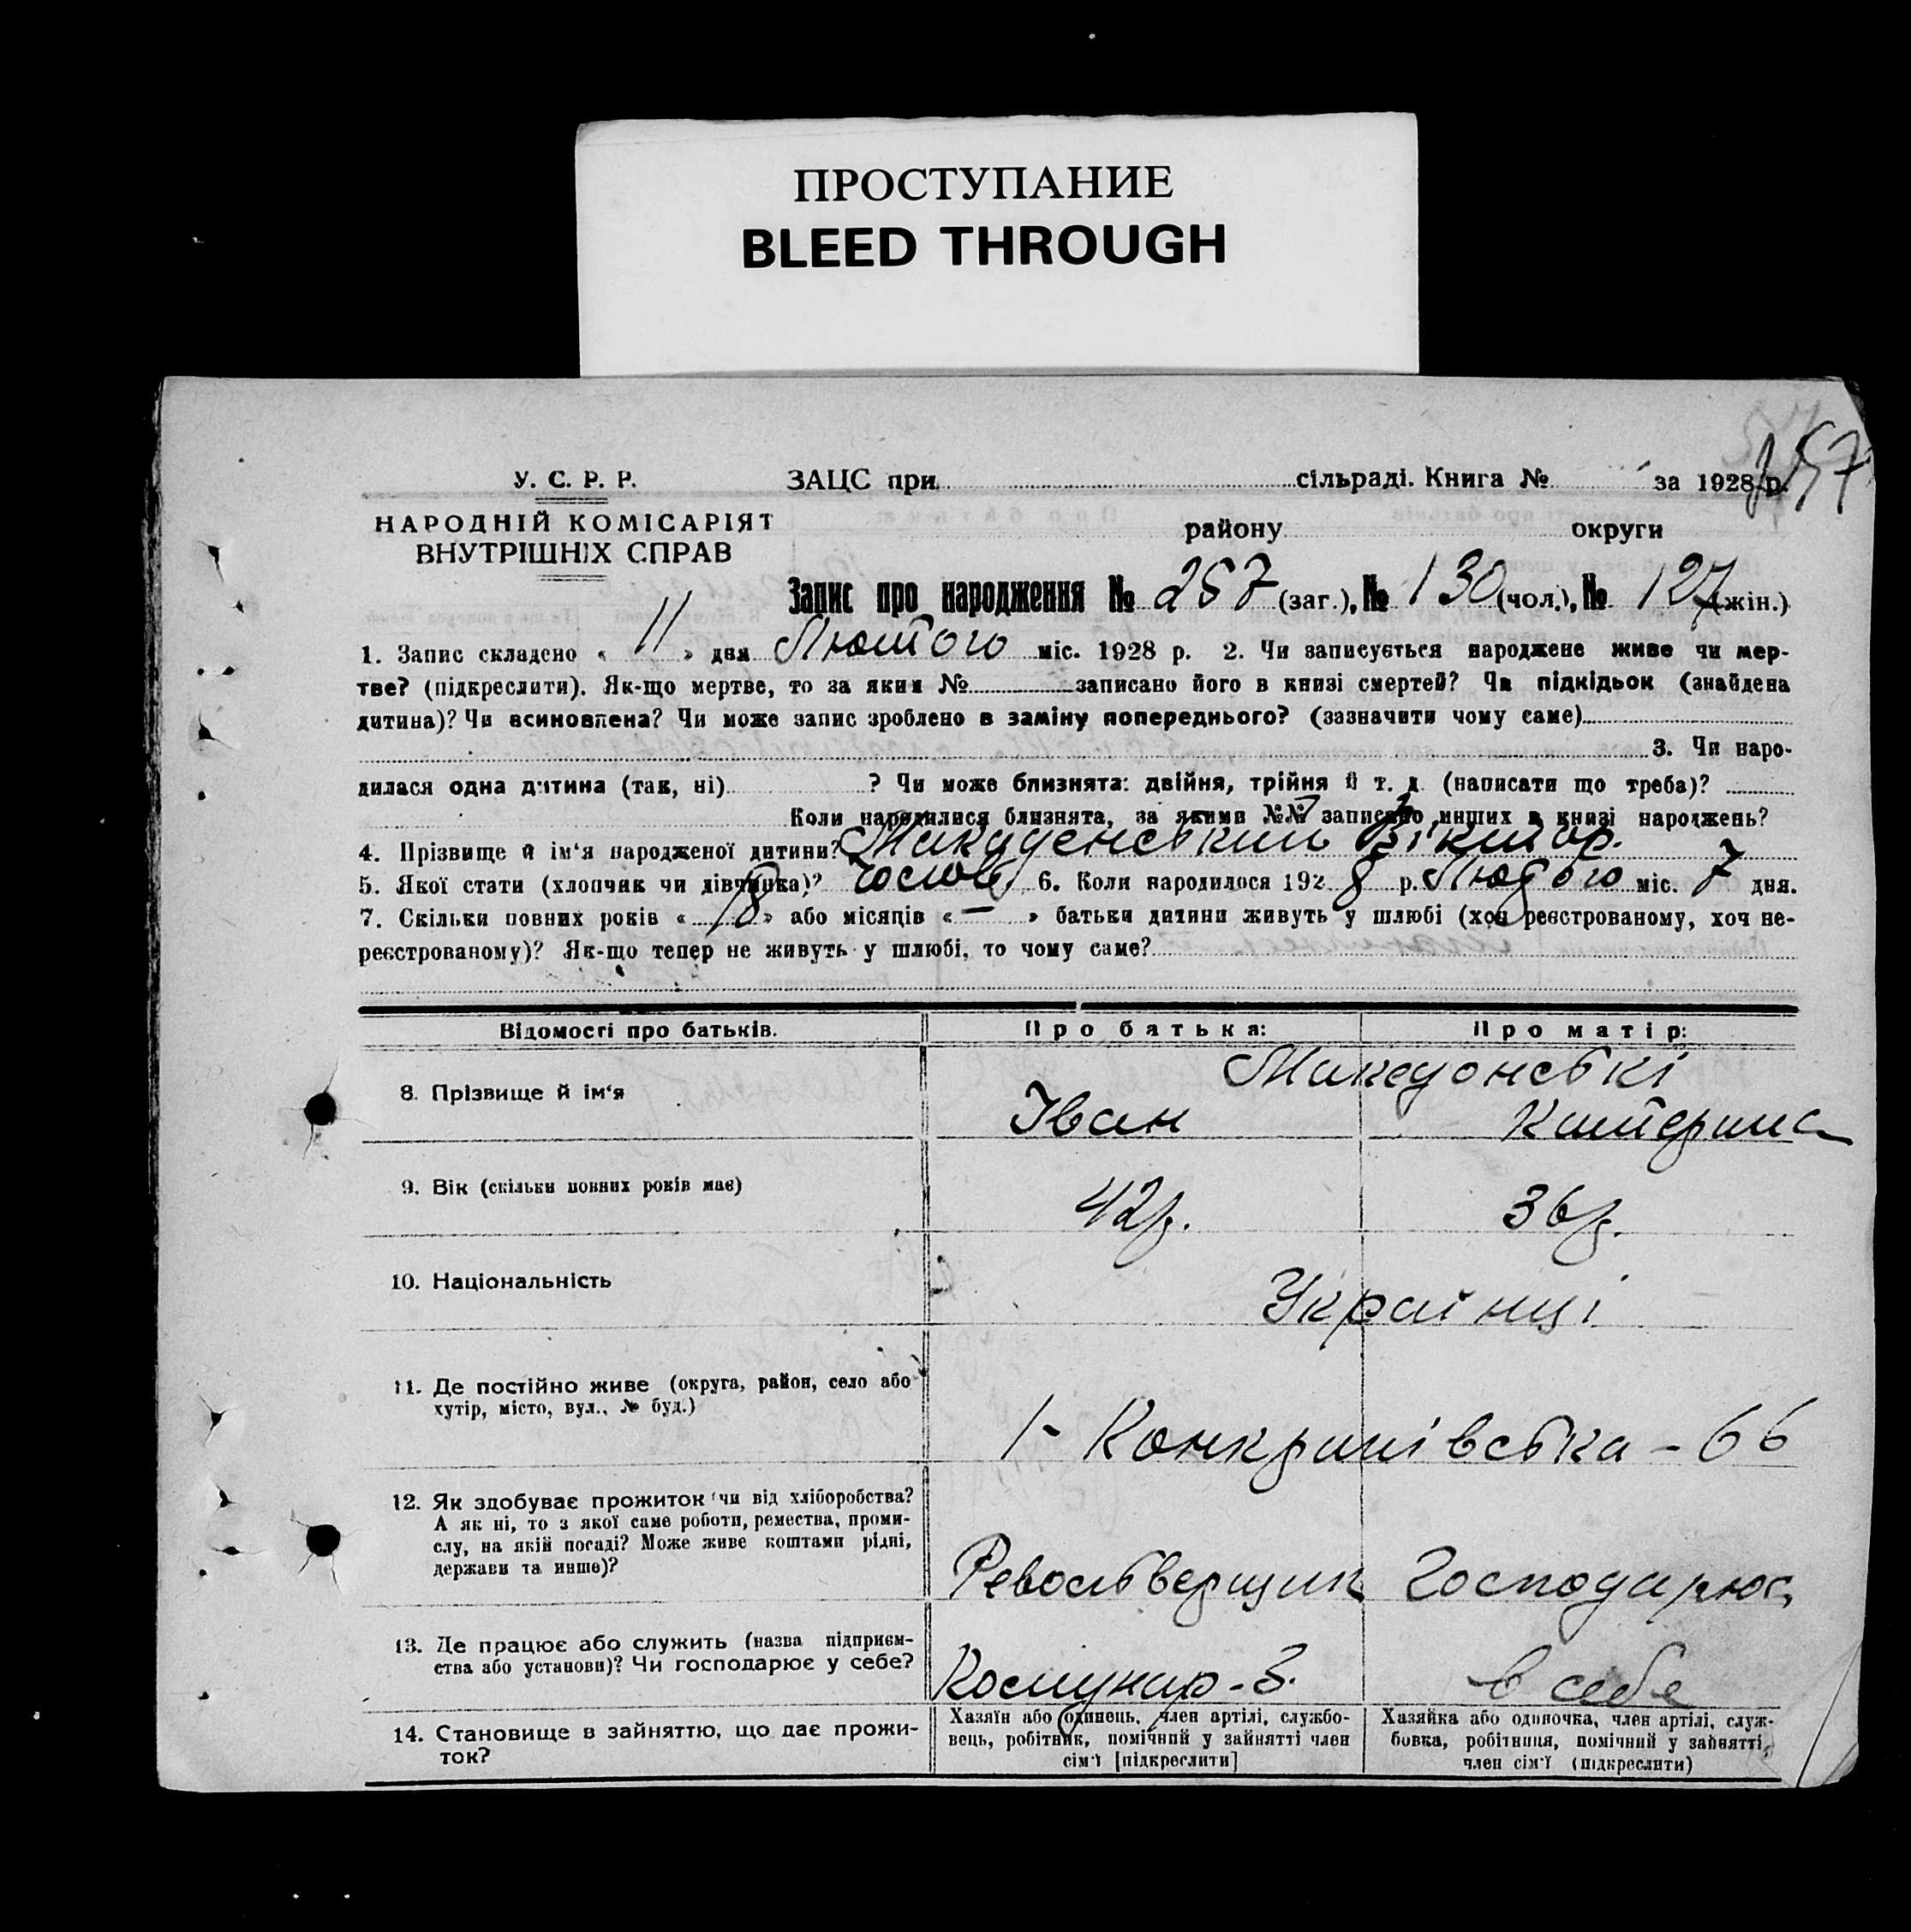 ПРОСТУПАНИЕ
BLEED THROUGH
157
У. С. Р. Р.
НАРОДНІЙ КОМІСАРІЯТ
ВНУТРІШНІХ СПРАВ
ЗАЦС при сільраді. Книга № за 1928 р.
району округи
Запис про народження № 257 (заг.), № 130 (чол.), № 127 (жін.)
1. Запис складено « 11 » дня Лютого міс. 1928 р. 2. Чи записується народжене живе чи мер-
тве? (підкреслити). Як-що мертве, то за яким № записано його в книзі смертей? Чи підкідьок (знайдена
дитина)? Чи всиновлена? Чи може запис зроблено в заміну попереднього? (зазначити чому саме)
3. Чи наро-
дилася одна дитина (так, ні) ? Чи може близнята: двійня, трійня й т. д. (написати що треба)?
Коли народилися близнята, за якими №№ записано инших в книзі народжень?
4. Прізвище й ім‘я народженої дитини? Македонський Віктор.
5. Якої стати (хлопчик чи дівчинка)? чолов. 6. Коли народилося 1928 р. Лютого міс. 7 дня.
7. Скільки повних років « 18 » або місяців « — » батьки дитини живуть у шлюбі (хоч реєстрованому, хоч не-
реєстрованому)? Як-що тепер не живуть у шлюбі, то чому саме?
Відомості про батьків. Про батька: Про матір:
Македонські
8. Прізвище й ім‘я Іван Катерина
9. Вік (скільки повних років має) 42 р. 36 р.
10. Національність Українці
11. Де постійно живе (округа, район, село або
хутір, місто, вул., № буд.) 1-
66
12. Як здобуває прожиток чи від хліборобства?
А як ні, то з якої саме роботи, ремества, проми-
слу, на якій посаді? Може живе коштами рідні,
держави та инше)?
Револьверщик Господарює
13. Де працює або служить (назва підприєм-
ства або установи)? Чи господарює у себе?
Комунар-З. в себе
14. Становище в зайняттю, що дає прожи-
ток?
Хазяїн або одинець, член артілі, службо-
вець, робітник, помічний у зайнятті член
сім‘ї [підкреслити]
Хазяйка або одиночка, член артілі, служ-
бовка, робітниця, помічний у зайнятті,
член сім‘ї (підкреслити)